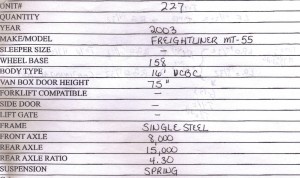 UNIT# 227
QUANTITY
YEAR 2003
MAKE/MODEL FREIGHTLINER MT-55
SLEEPER SIZE –
WHEEL BASE 158
BODY TYPE 16'
VAN BOX DOOR HEIGHT 75"
FORKLIFT COMPATIBLE –
SIDE DOOR –
LIFT GATE –
FRAME SINGLE STEEL
FRONT AXLE 8,000
REAR AXLE 15,000
REAR AXLE RATIO 4.30
SUSPENSION SPRING